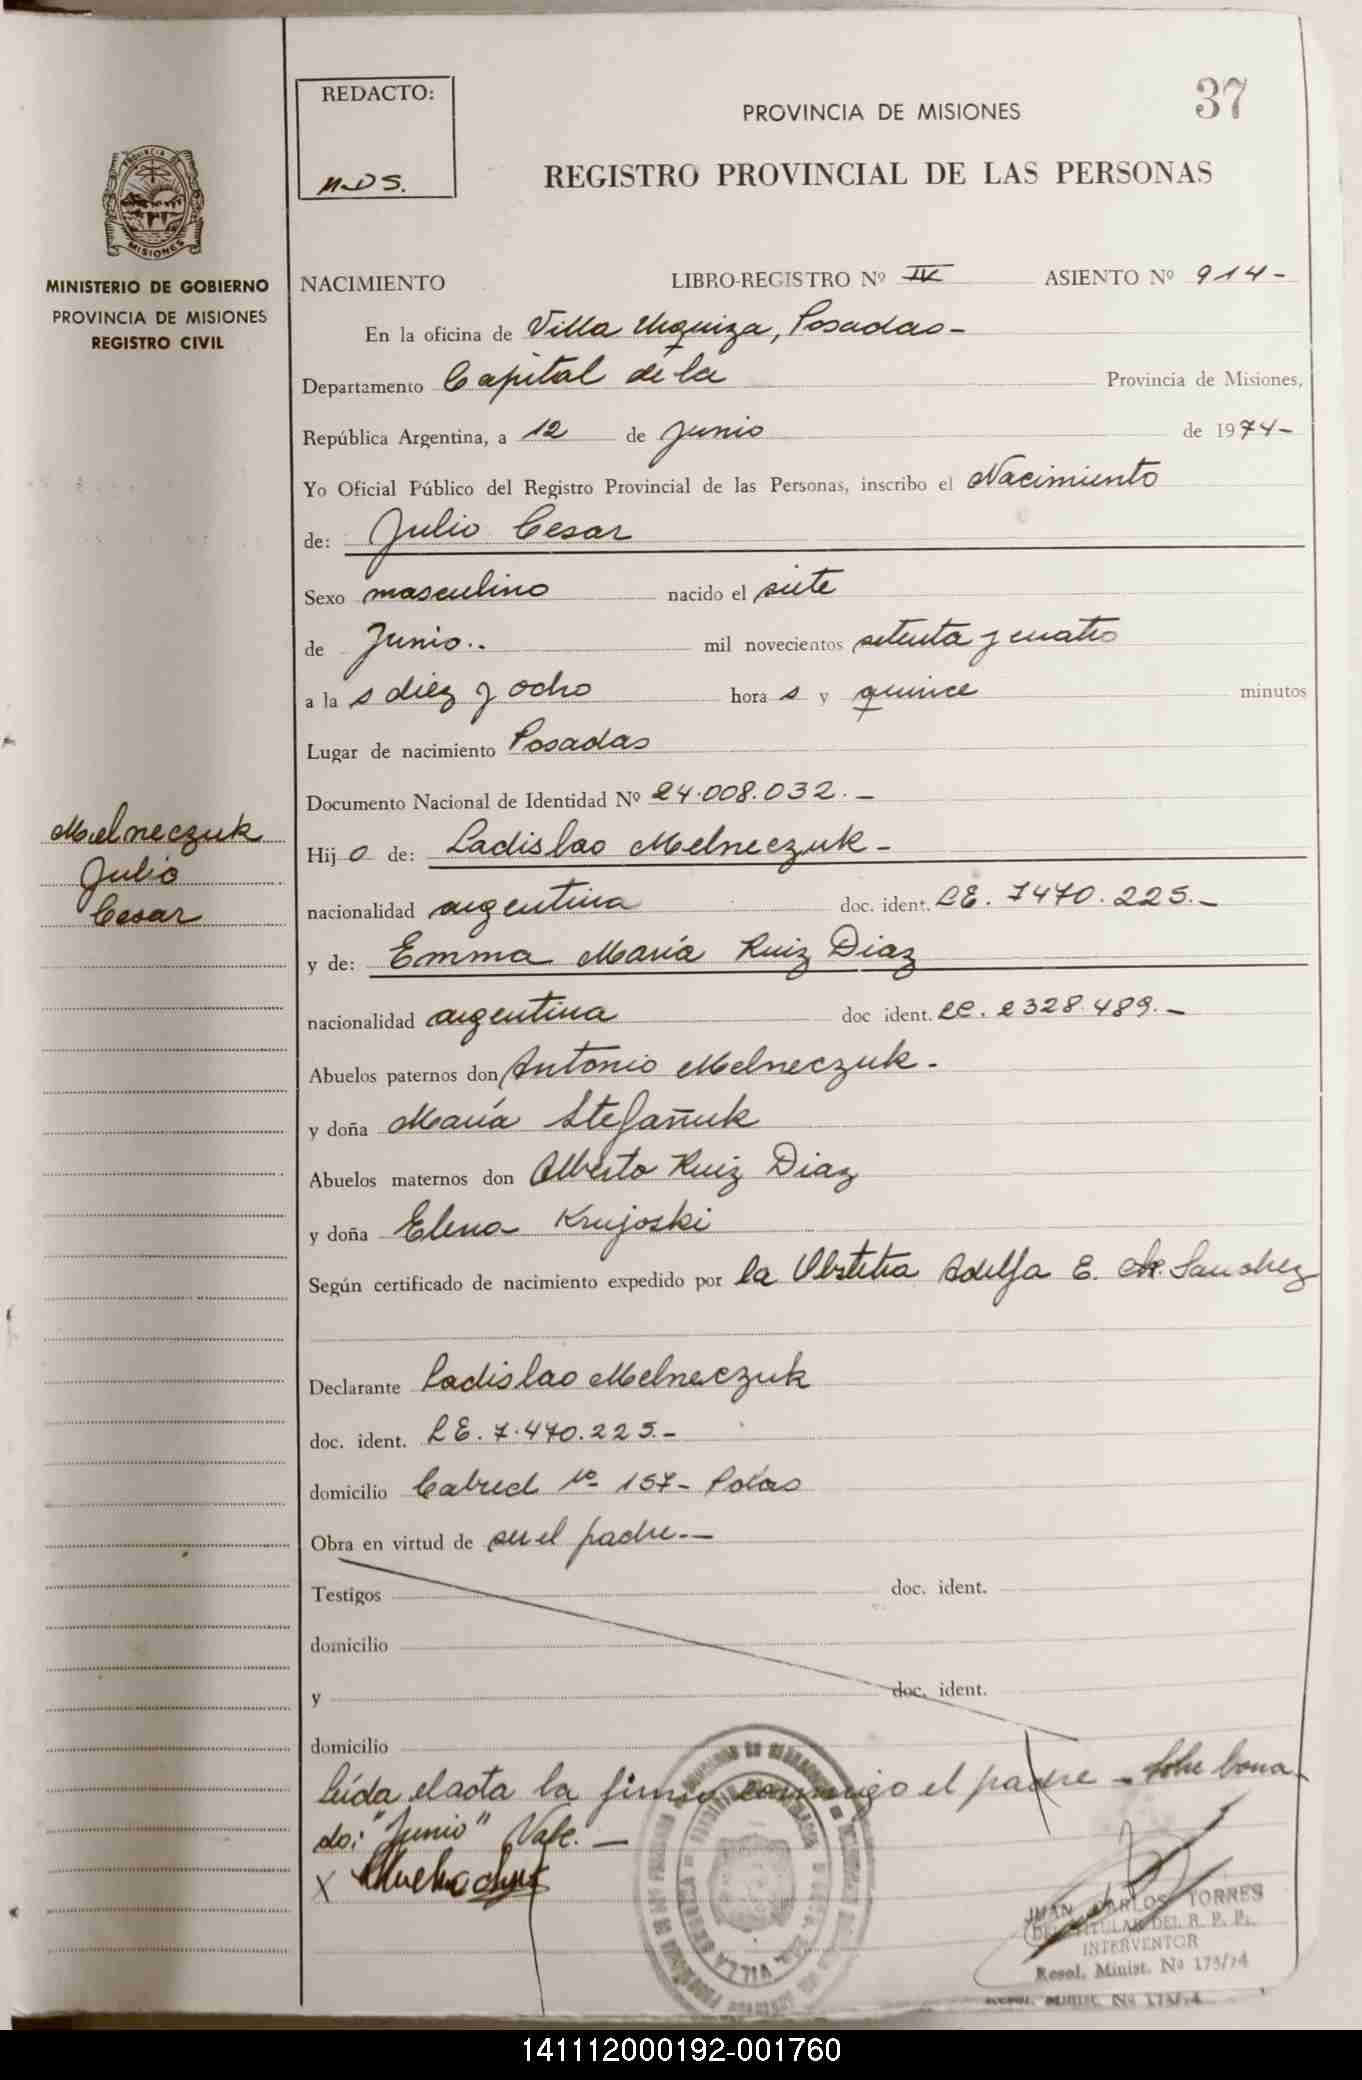 REDACTO:
37
PROVINCIA DE MISIONES
M.D S.
REGISTRO PROVINCIAL DE LAS PERSONAS
PROVINCIA DE
MISIONES
MINISTERIO DE GOBIERNO
PROVINCIA DE MISIONES
REGISTRO CIVIL
NACIMIENTO LIBRO-REGISTRO Nº IV ASIENTO Nº 914-
En la oficina de Villa Urquiza, Posadas-
Departamento Capital de la Provincia de Misiones,
República Argentina, a 12 de Junio de 1974-
Yo Oficial Público del Registro Provincial de las Personas, inscribo el Nacimiento
de: Julio Cesar
Sexo masculino nacido el siete
de Junio.. mil novecientos setenta y cuatro
a la s diez y ocho hora s y quince minutos
Lugar de nacimiento Posadas
Documento Nacional de Identidad Nº 24.008.032.-
Melneczuk
Julio
Cesar
Hij o de: Ladislao Melneczuk-
nacionalidad argentina doc. ident. LE. 7470.225.-
y de: Emma María Ruiz Diaz
nacionalidad argentina doc ident. LC. 2328.489.-
Abuelos paternos don Antonio Melneczuk.
y doña María Stefañuk
Abuelos maternos don Alberto Ruiz Diaz
y doña Elena Krujoski
Según certificado de nacimiento expedido por la Obstetra Adelfa E. de Sanchez
Declarante Ladislao Melneczuk
doc. ident. LE. 7.470.225.-
domicilio Cabred Nº 157- Pdas
Obra en virtud de ser el padre.-
Testigos doc. ident.
domicilio
y doc. ident.
domicilio
Leída el acta la firma conmigo el padre - Sobre borra
do: "Junio" Vale.-
X
VILLA URQUIZA
JUAN CARLOS TORRES
DEL TITULAR DEL R. P. P.
INTERVENTOR
Resol. Minist. Nº 175/74
Resol. Minist. Nº 175/74
141112000192-001760